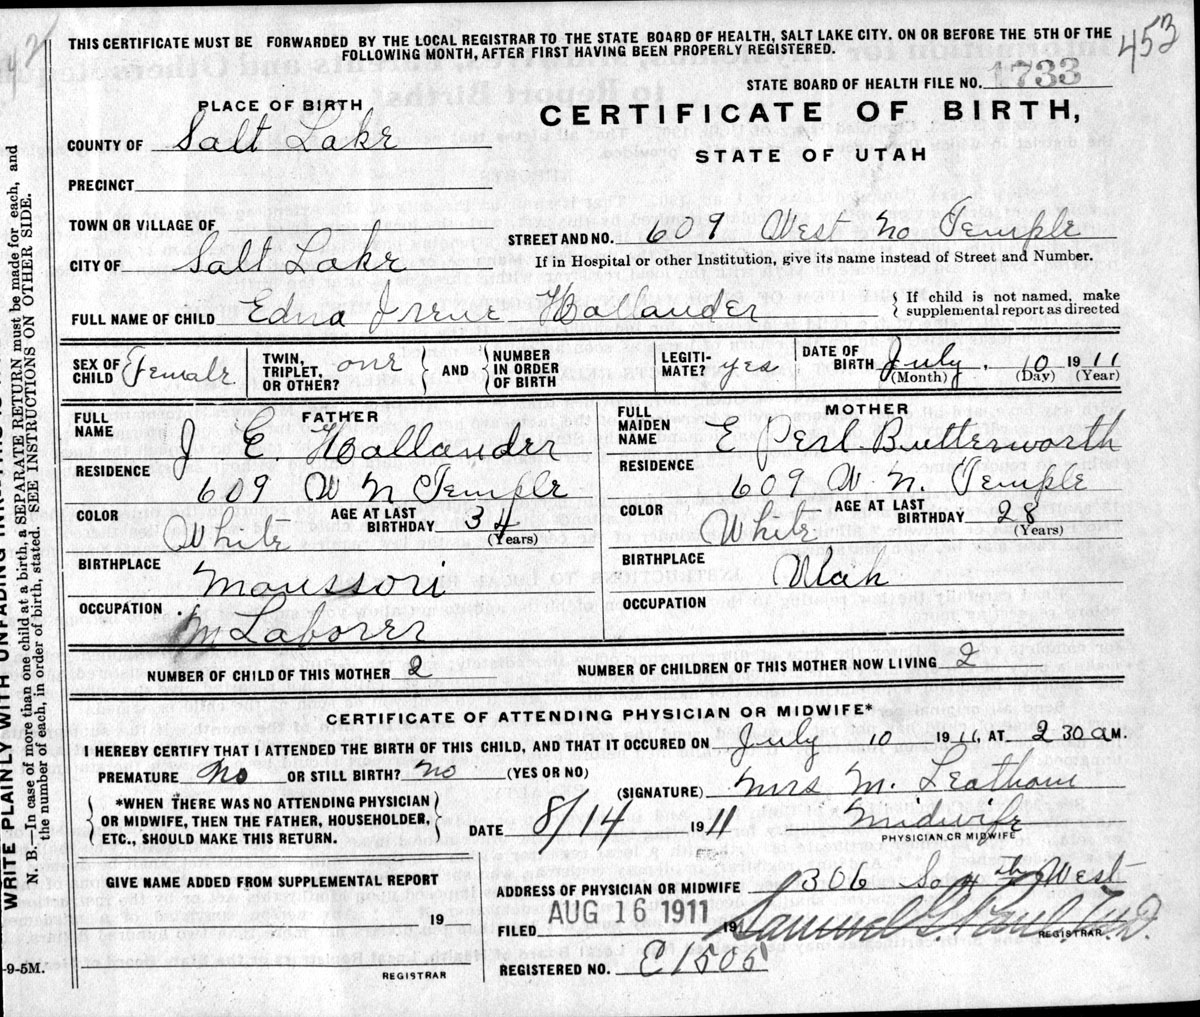 453
THIS CERTIFICATE MUST BE FORWARDED BY THE LOCAL REGISTRAR TO THE STATE BOARD OF HEALTH, SALT LAKE CITY. ON OR BEFORE THE 5TH OF THE
FOLLOWING MONTH, AFTER FIRST HAVING BEEN PROPERLY REGISTERED.
STATE BOARD OF HEALTH FILE NO. 1733
PLACE OF BIRTH,
CERTIFICATE OF BIRTH,
COUNTY OF Salt Lake
STATE OF UTAH
PRECINCT
TOWN OR VILLAGE OF
STREET AND NO. 609 West No Temple
CITY OF Salt Lake
If in Hospital or other Institution, give its name instead of Street and Number.
FULL NAME OF CHILD Edna Irene Hollander
{ If child is not named, make
supplemental report as directed
SEX OF CHILD Female
TWIN, TRIPLET, OR OTHER? one
} AND {
NUMBER IN ORDER OF BIRTH
LEGITI- MATE? yes
DATE OF BIRTH July, 10 1911
(Month) (Day) (Year)
FATHER
FULL NAME J E. Hollander
RESIDENCE
609 W N Temple
COLOR White
AGE AT LAST BIRTHDAY 34
(Years)
BIRTHPLACE
Moussori
OCCUPATION
Laborer
MOTHER
FULL MAIDEN NAME E Perl Butterworth
RESIDENCE
609 W. N. Temple
COLOR White
AGE AT LAST BIRTHDAY 28
(Years)
BIRTHPLACE
Utah
OCCUPATION
NUMBER OF CHILD OF THIS MOTHER 2
NUMBER OF CHILDREN OF THIS MOTHER NOW LIVING 2
CERTIFICATE OF ATTENDING PHYSICIAN OR MIDWIFE*
I HEREBY CERTIFY THAT I ATTENDED THE BIRTH OF THIS CHILD, AND THAT IT OCCURED ON July 10 1911, AT 2 30 A M.
PREMATURE No OR STILL BIRTH? No (YES OR NO)
(SIGNATURE) Mrs M. Leatham
{ *WHEN THERE WAS NO ATTENDING PHYSICIAN
OR MIDWIFE, THEN THE FATHER, HOUSEHOLDER,
ETC., SHOULD MAKE THIS RETURN. }
DATE 8/14 1911
Midwife
PHYSICIAN OR MIDWIFE
GIVE NAME ADDED FROM SUPPLEMENTAL REPORT
19
REGISTRAR
ADDRESS OF PHYSICIAN OR MIDWIFE 306 So West
FILED AUG 16 1911 19
REGISTRAR
REGISTERED NO. E1505
-9-5M.
WRITE PLAINLY WITH UNFADING INK
N. B.—In case of more than one child at a birth, a SEPARATE RETURN must be made for each, and
the number of each, in order of birth, stated. SEE INSTRUCTIONS ON OTHER SIDE.